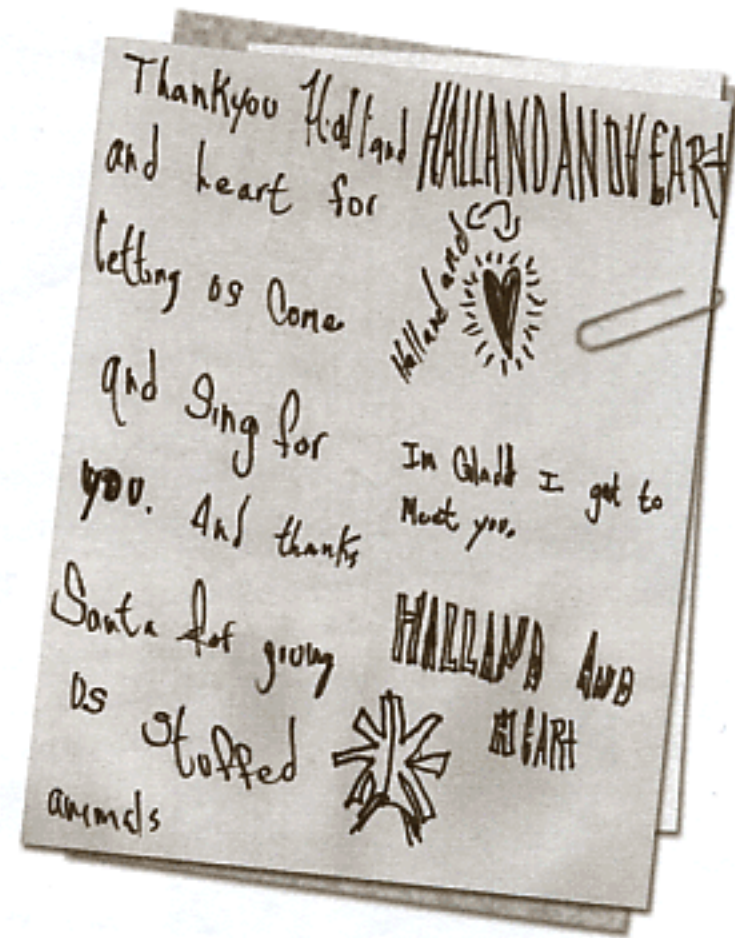 Thankyou Halland
and heart for
letting us Come
and Sing for
you. And thanks
Santa for giving
us stuffed
animals
HALLANDANDHEART
Halland and
Im Gladd I got to
Meet you.
HALLAND AND
HEART